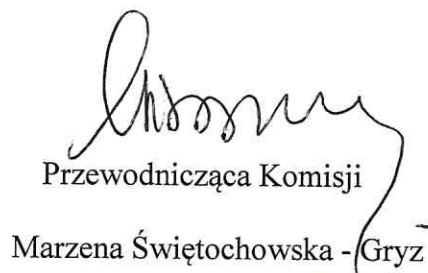 Przewodnicząca Komisji
Marzena Świętochowska - Gryz